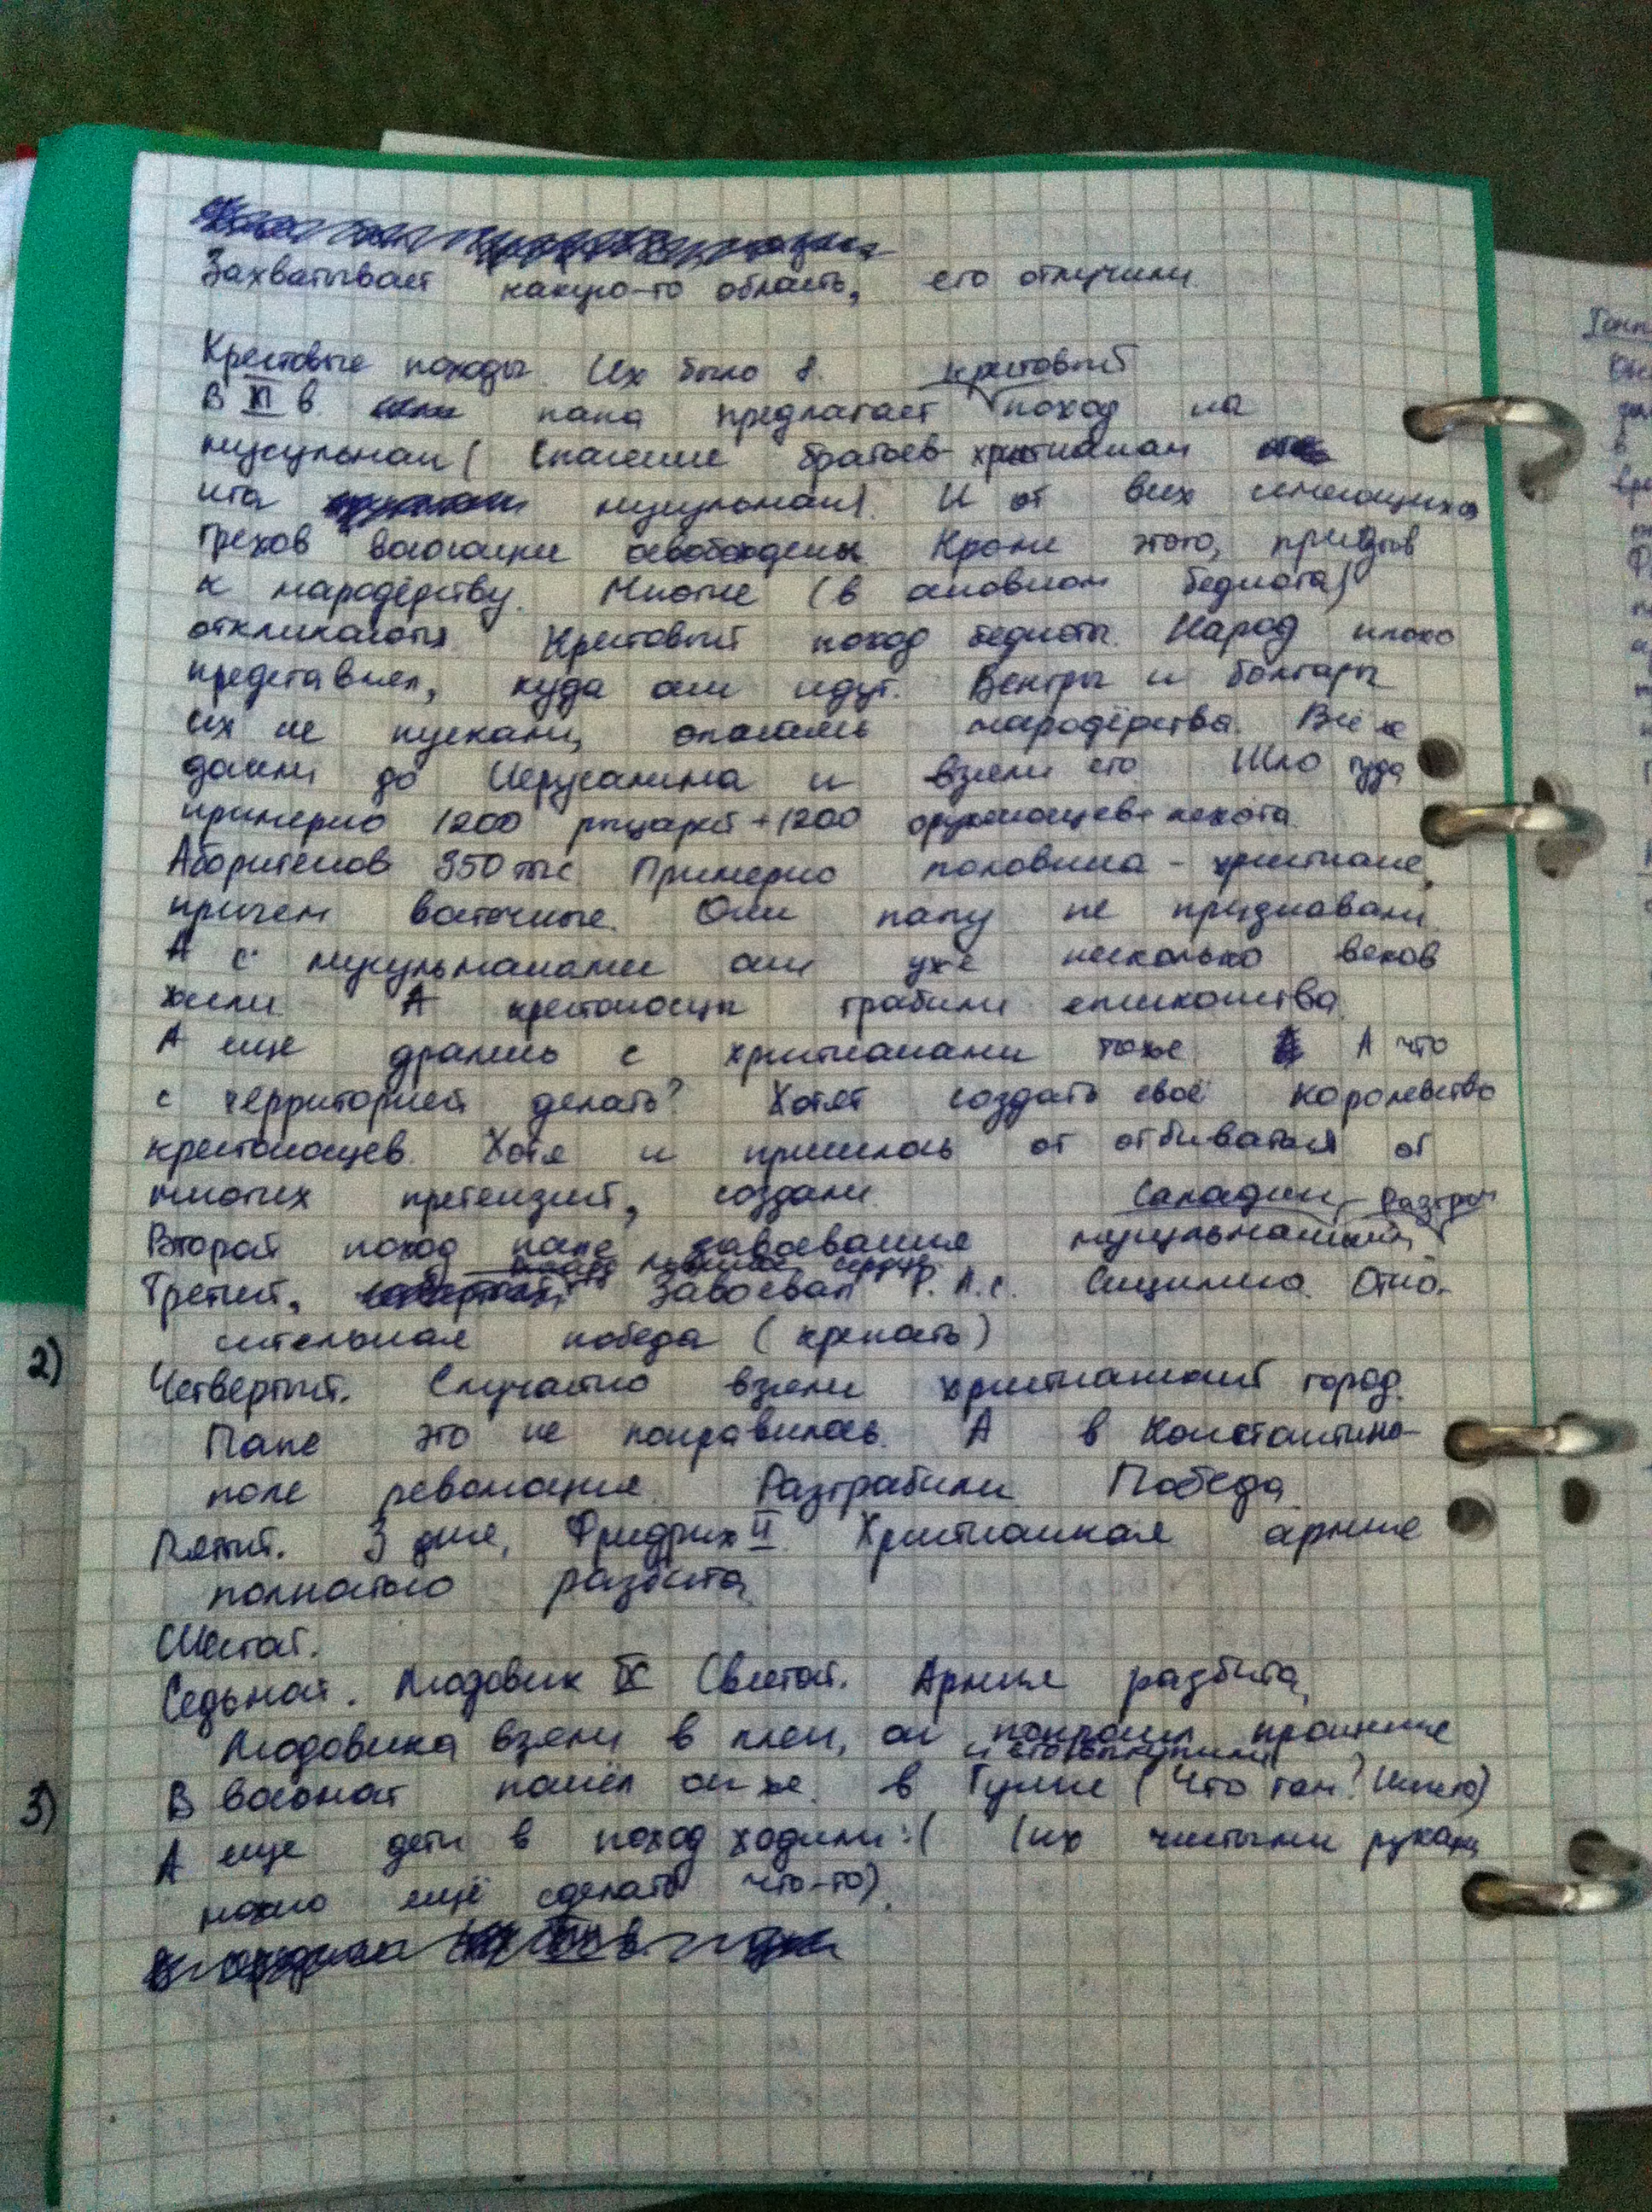 Захватывает какую-то область, его отлучили.
Крестовые походы. Их было 8.
В XI в. папа предлагает крестовый поход на
мусульман (Спасение братьев-христиан
ига мусульман). И от всех имеющихся
грехов воюющие освобождены. Кроме этого, призыв
к мародёрству. Многие (в основном беднота)
откликаются. Крестовый поход бедноты. Народ плохо
представлял, куда они идут. Венгры и болгары
их не пускали, опасаясь мародёрства. Всё же
дошли до Иерусалима и взяли его. Шло туда
примерно 1200 рыцарей + 1200 оруженосцев + пехота.
Аборигенов 350 тыс. Примерно половина - христиане,
причем восточные. Они папу не признавали.
А с мусульманами они уже несколько веков
жили. А крестоносцы грабили епископства.
А еще дрались с христианами тоже. А что
с территорией делать? Хотят создать своё королевство
крестоносцев. Хотя и пришлось от отбиваться от
многих претензий, создали.
Саладин, - разгром
Второй поход после завоевания мусульманами
Третий, Завоевал Р.Л.С. Сицилию. Отно-
сительная победа (крепость)
Четвертый. Случайно взяли христианский город.
Папе это не понравилось. А в Константино-
поле революция. Разграбили. Победа.
Пятый. 3 дня, Фридрих II. Христианская армия
полностью разбита
Шестой.
Седьмой. Людовик IX Святой. Армия разбита,
Людовика взяли в плен, он попросил прощение
и его выкупили
В восьмой пошёл он же. в Тунис (Что там? Ничего)
А еще дети в поход ходили :( (их чистыми руками
можно ещё сделать что-то).
2)
3)